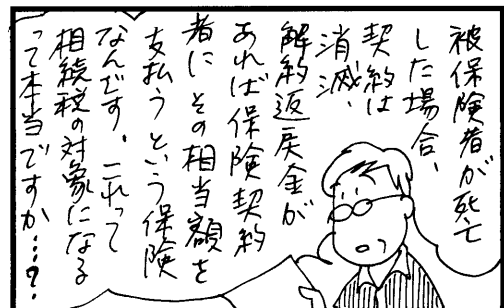 被保険者が死亡
した場合、
契約は
消滅、
解約返戻金が
あれば保険契約
者にその相当額を
支払うという保険
なんです。これって
相続税の対象になる
って本当ですか…?